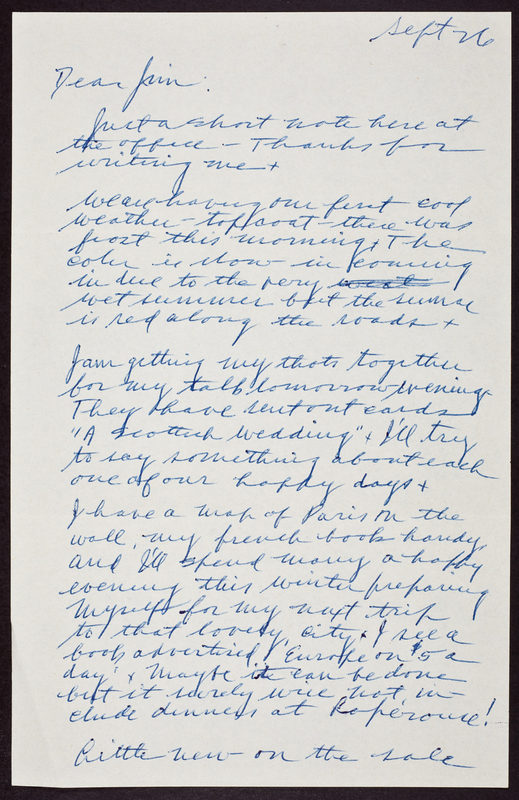 Sept 26
Dear Jim:
Just a short note here at
the office – Thanks for
writing me +
We are having our first cool
weather – topcoat – there was
frost this morning + The
color is slow in coming
in due to the very
wet summer but the sumac
is red along the roads +
I am getting my thots together
for my talk tomorrow evening.
They have sent out cards
"A Scottish Wedding" + I'll try
to say something about each
one of our happy days +
I have a map of Paris on the
wall, my french book handy,
and I'll spend many a happy
evening this winter preparing
myself for my next trip
to that lovely city + I see a
book advertised, "Europe on $5 a
day" + Maybe it can be done
but it surely will not in-
clude dinners at Lapérouse!
Little new on the sale